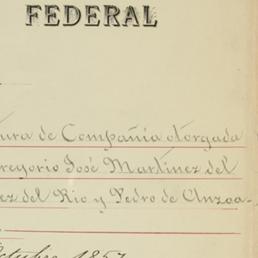 FEDERAL
tura de Compañía otorgada
regorio José Martinez del
ez del Rio y Pedro de Anzoa-
ctubre 1857